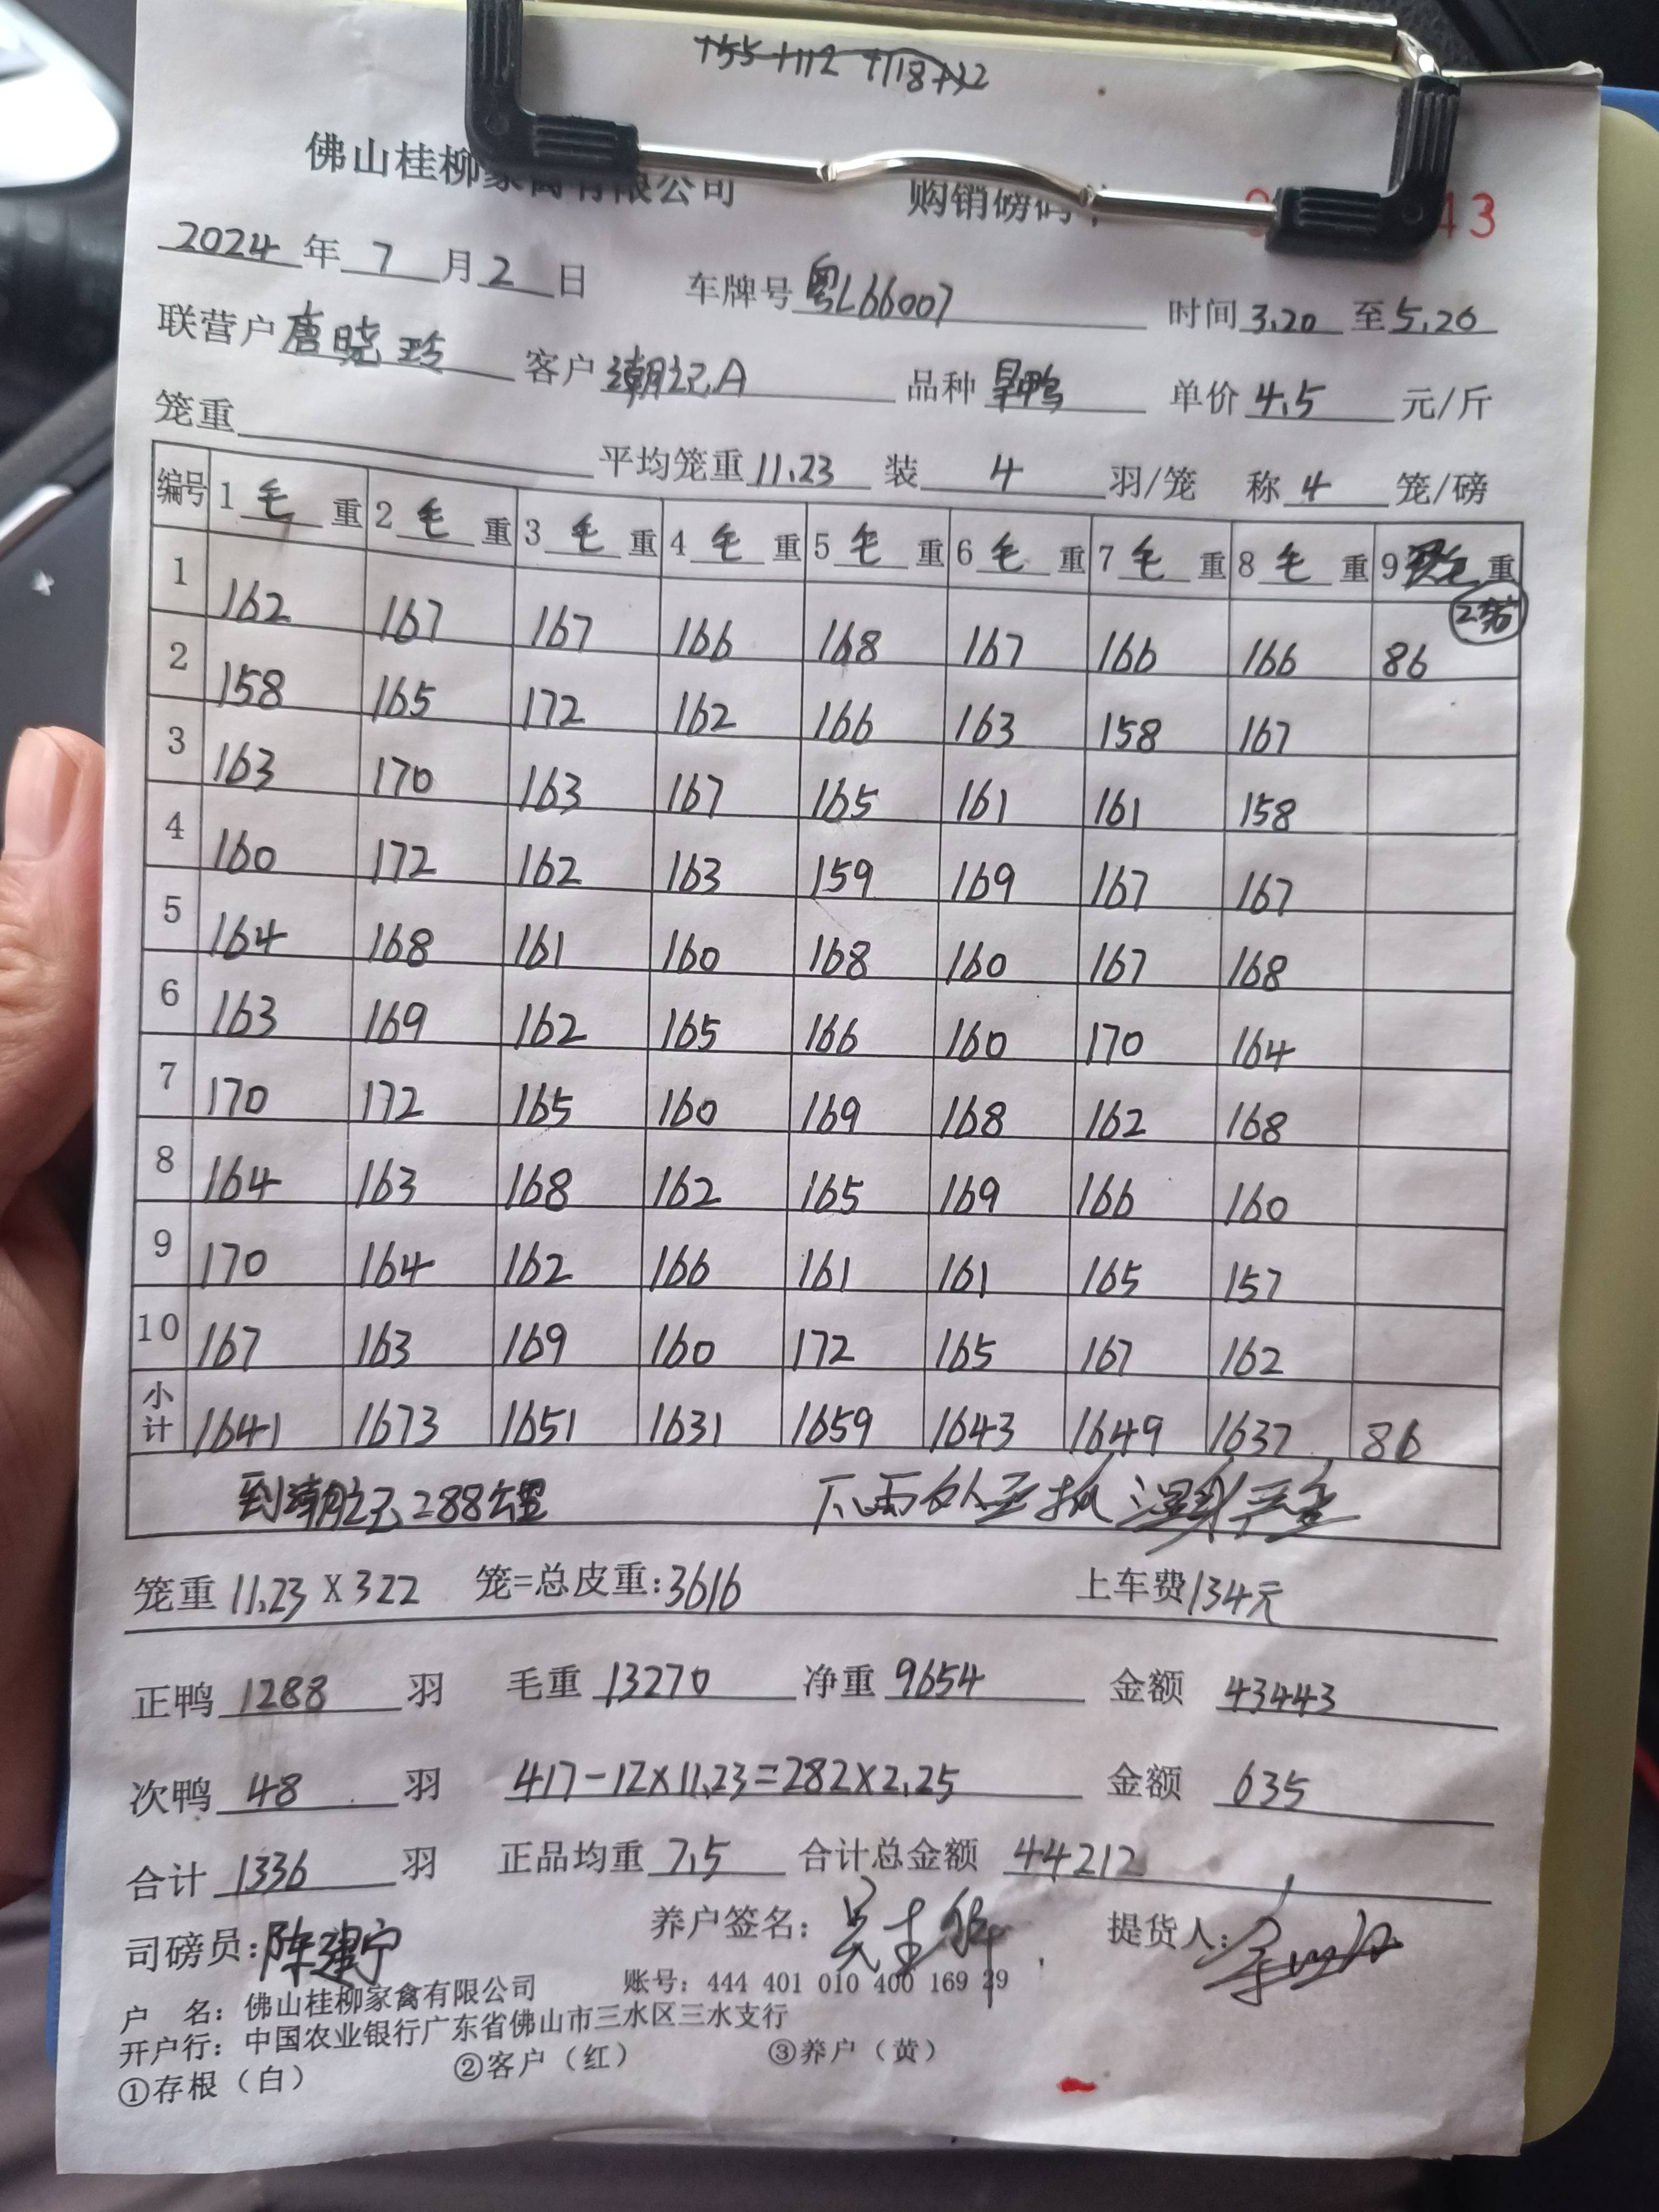 +55+112+118+32
佛山桂柳家禽有限公司 购销磅码 43
2024年7月2日 车牌号粤L66007 时间3.20至5.20
联营户唐晓玲 客户潮记A 品种旱鸭 单价4.5元/斤
笼重 平均笼重11.23 装4羽/笼 称4笼/磅
编号 1毛重 2毛重 3毛重 4毛重 5毛重 6毛重 7毛重 8毛重 9毛重
2笼
1 162 167 167 166 168 167 166 166 86
2 158 165 172 162 166 163 158 167
3 163 170 163 167 165 161 161 158
4 160 172 162 163 159 169 167 167
5 164 168 161 160 168 160 167 168
6 163 169 162 165 166 160 170 164
7 170 172 165 160 169 168 162 168
8 164 163 168 162 165 169 166 160
9 170 164 162 166 161 161 165 157
10 167 163 169 160 172 165 167 162
小计 1641 1673 1651 1631 1659 1643 1649 1637 86
到潮记288公里 下雨
笼重11.23X322 笼=总皮重:3616 上车费134元
正鸭1288羽 毛重13270 净重9654 金额43443
次鸭48羽 417-12X11.23=282X2.25 金额635
合计1336羽 正品均重7.5 合计总金额44212
司磅员:陈建宁 养户签名: 提货人:
户 名:佛山桂柳家禽有限公司 账号:444 401 010 400 169 29
开户行:中国农业银行广东省佛山市三水区三水支行
①存根（白） ②客户（红） ③养户（黄）